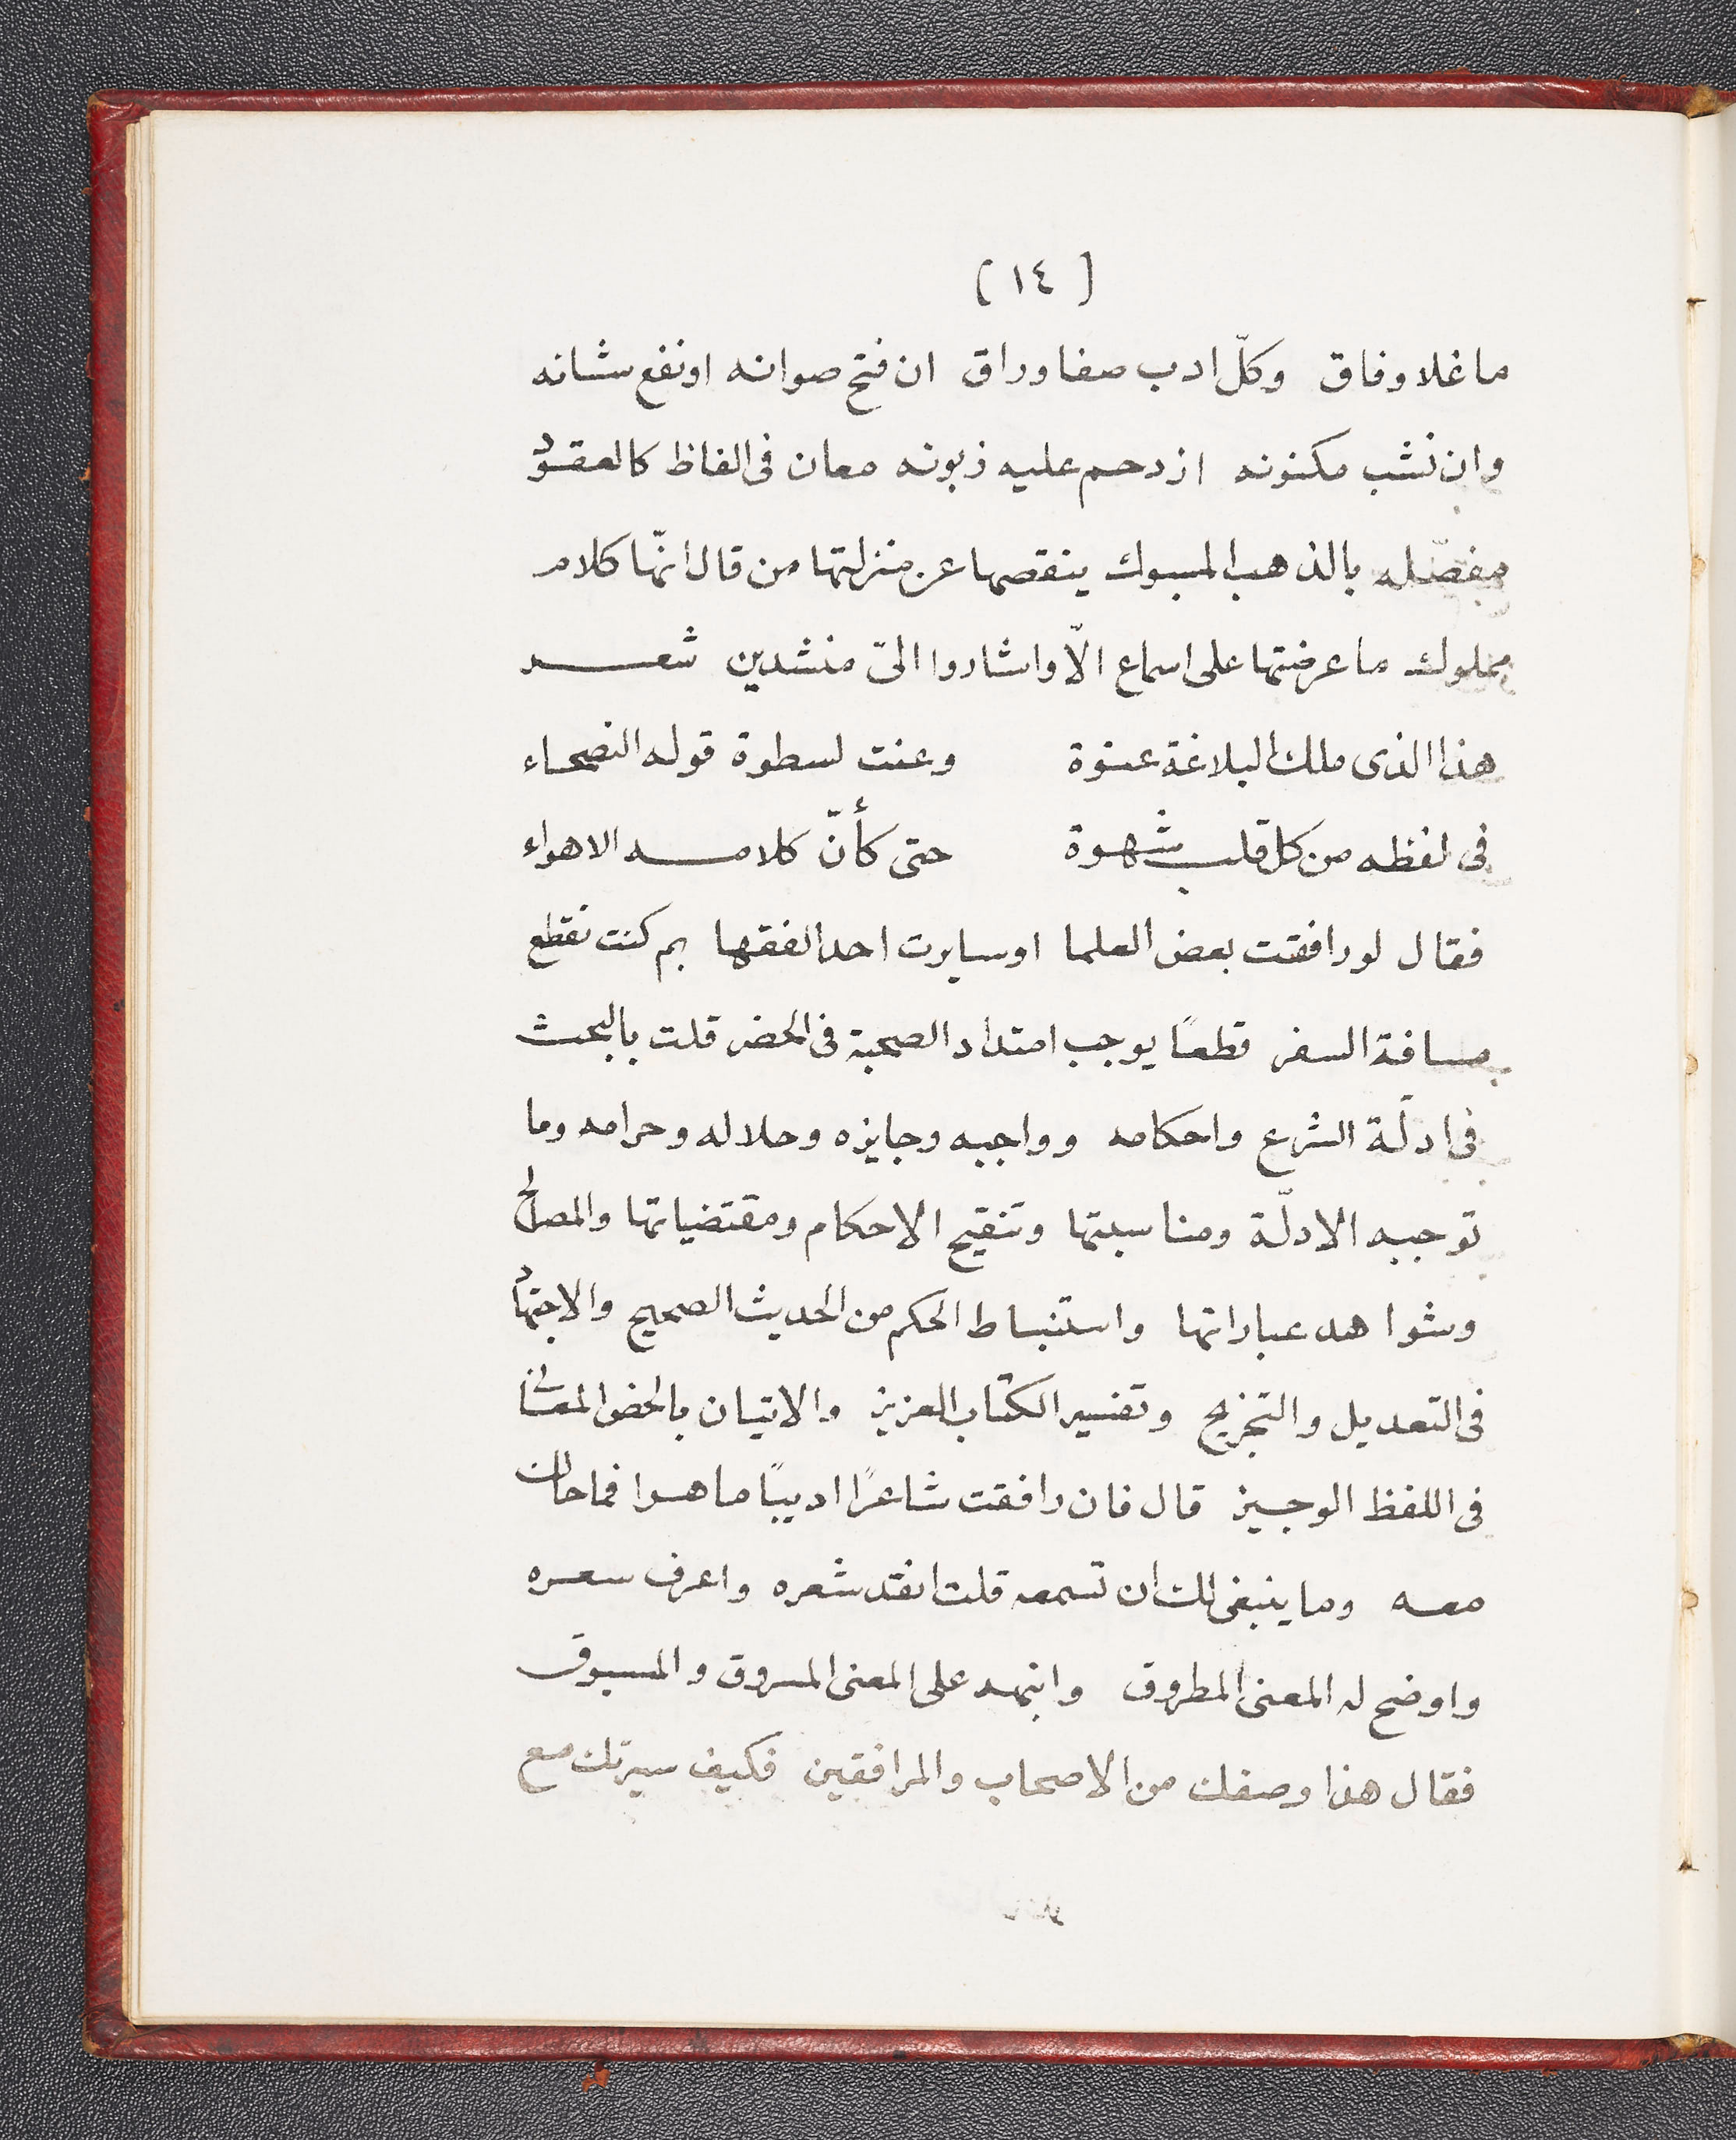 (١٤)
ما غلا وفاق وكلّ ادب صفا وراق ان فتح صوانه اونفع شانه
وان نشب مكنونه ازدحم عليه زبونه معان فى الفاظ كالعقود
مفصّله بالذهب المسبوك ينقصها عن منزلتها من قال انّها كلام
مملوك ما عرضتها على اسماع الّا واشاروا الىّ منشدين شعر
هذا الذى ملك البلاغة عنوة وعنت لسطوة قوله الفصحاء
فى لفظه من كل قلب شهوة حتى كأنّ كلامه الاهواء
فقال لو رافقت بعض العلما اوسايرت احد الفقها بم كنت تقطع
مسافة السفر قطعًا يوجب امتداد الصحبة فى الحضر قلت بالبحث
فى ادلّة الشرع واحكامه وواجبه وجايزه وحلاله وحرامه وما
توجبه الادلّة ومناسبتها وتنقيح الاحكام ومقتضياتها والمصالح
وشواهد عباراتها واستنباط الحكم من الحديث الصحيح والاجتهاد
فى التعديل والتجزيح وتفسير الكتاب العزيز والاتيان بالحض المعانى
فى اللفظ الوجيز قال فان رافقت شاعرًا اديبًا ماهرا فما حالك
معه وما ينبغى لك ان تسمعه قلت انقد شعره واعرف سعره
واوضح له المعنى المطروق وانبهه على المعنى المسروق والمسبوق
فقال هذا وصفك من الاصحاب والمرافقين فكيف سيرتك مع